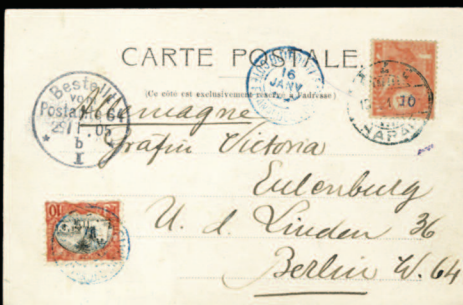 CARTE POSTALE
(Ce côté est exclusivement réservé à l'adresse)
16
JANV
Bestellt
vom
Postamte 64
b
I
10
HARAR
10
Allemagne
Gräfin Victoria
Eulenburg
U. d. Linden 36
Berlin W. 64